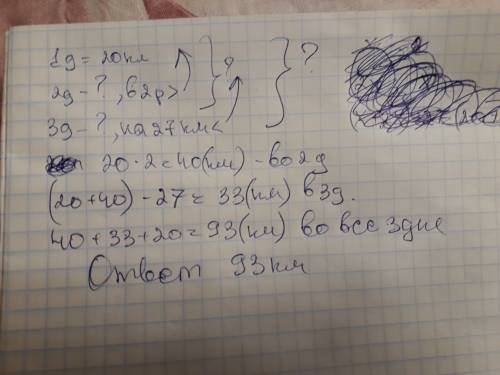 1д = 20 км } ? } ?
2д - ?, в 2р >
3д - ?, на 27 км <
20 · 2 = 40 (км) - во 2д
(20+40) - 27 = 33 (км) в 3д.
40 + 33 + 20 = 93 (км) во все 3 дне
Ответ 93 км